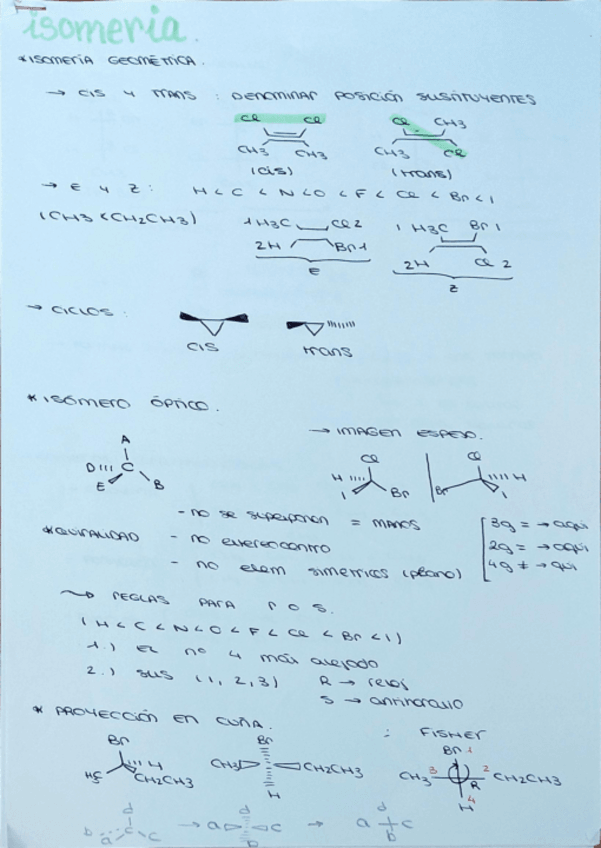 isomería.
*ISOMERÍA GEOMÉTRICA.
→ CIS Y TRANS : DENOMINAR POSICIÓN SUSTITUYENTES
Cl Cl Cl CH3
CH3 CH3 CH3 Cl
(CIS) (TRANS)
→ E Y Z : H < C < N < O < F < Cl < Br < I
(CH3 < CH2CH3) 1 H3C Cl 2 1 H3C Br 1
2H Br 1 2H Cl 2
E Z
→ CICLOS :
CIS TRANS
* ISÓMERO ÓPTICO.
→ IMAGEN ESPEJO.
A
D C E B
Cl Cl
H I Br Br H I
- no se superponen = MANOS [3g = → aqui
*QUIRALIDAD - no estereocentro 2g = → aqui
- no elem simetricos (plano) 4g ≠ → qui
REGLAS PARA r O S.
(H < C < N < O < F < Cl < Br < I)
1.) El nº 4 más alejado
2.) sus (1, 2, 3) R → reloj
S → antihorario
* PROYECCIÓN EN CUÑA. : FISHER
Br Br Br 1
4 CH3 CH2CH3 CH3 3 2 CH2CH3
CH2CH3 R
H 4 H
d d d
b a c c → a c → a c
b b